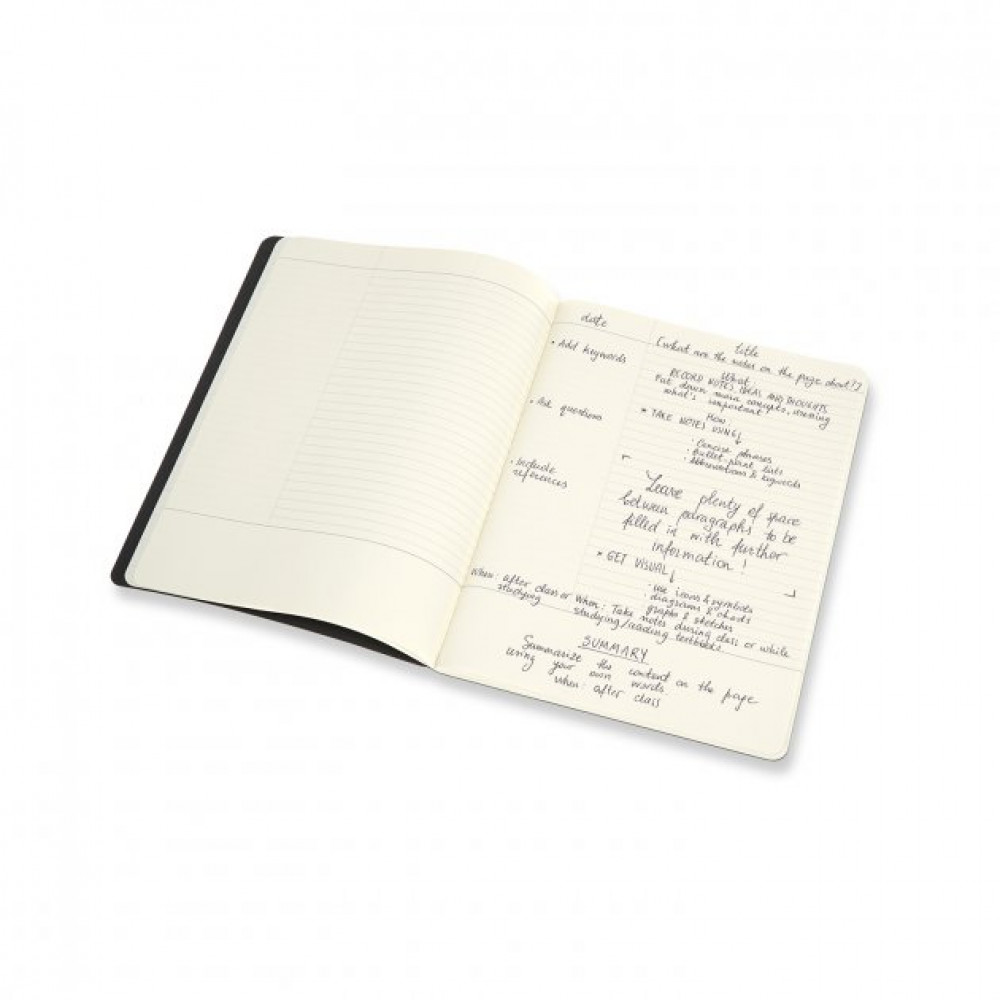 date
title
[what are the notes on the page about?]
• Add keywords
• Ask questions
• Include
references
When: after class or
studying
What:
RECORD NOTES, IDEAS AND THOUGHTS
Put down main concepts, meaning
what's important
How:
* TAKE NOTES USING↓
• Concise phrases
• Bullet-point lists
• Abbreviations & keywords
Leave plenty of space
between paragraphs to be
filled in with further
information!
* GET VISUAL↓
• use icons & symbols
• diagrams & charts
• graphs & sketches
When: Take notes during class or while
studying/reading textbooks
SUMMARY
Summarize the content on the page
using your own words.
When: after class